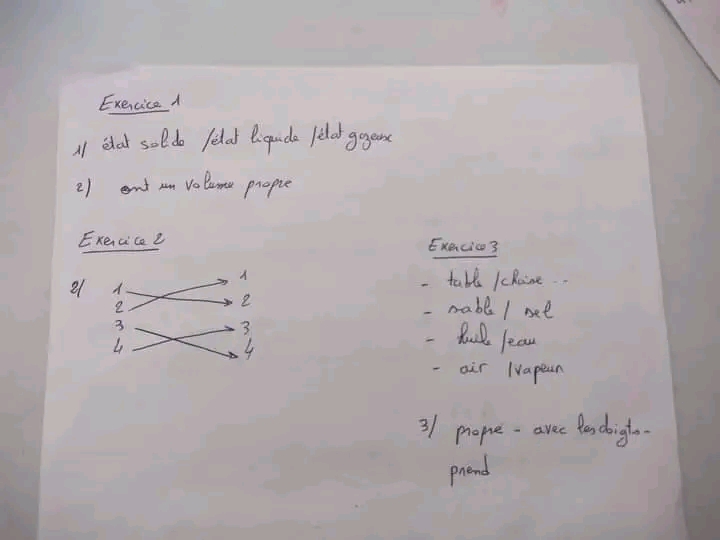 Exercice 1
1) état solide /état liquide /état gazeux
2) ont un volume propre
Exercice 2
2/
1 1
2 2
3 3
4 4
Exercice 3
- table /chaise ..
- sable / sel
- huile /eau
- air /vapeur
3/ propre - avec les doigts -
prend